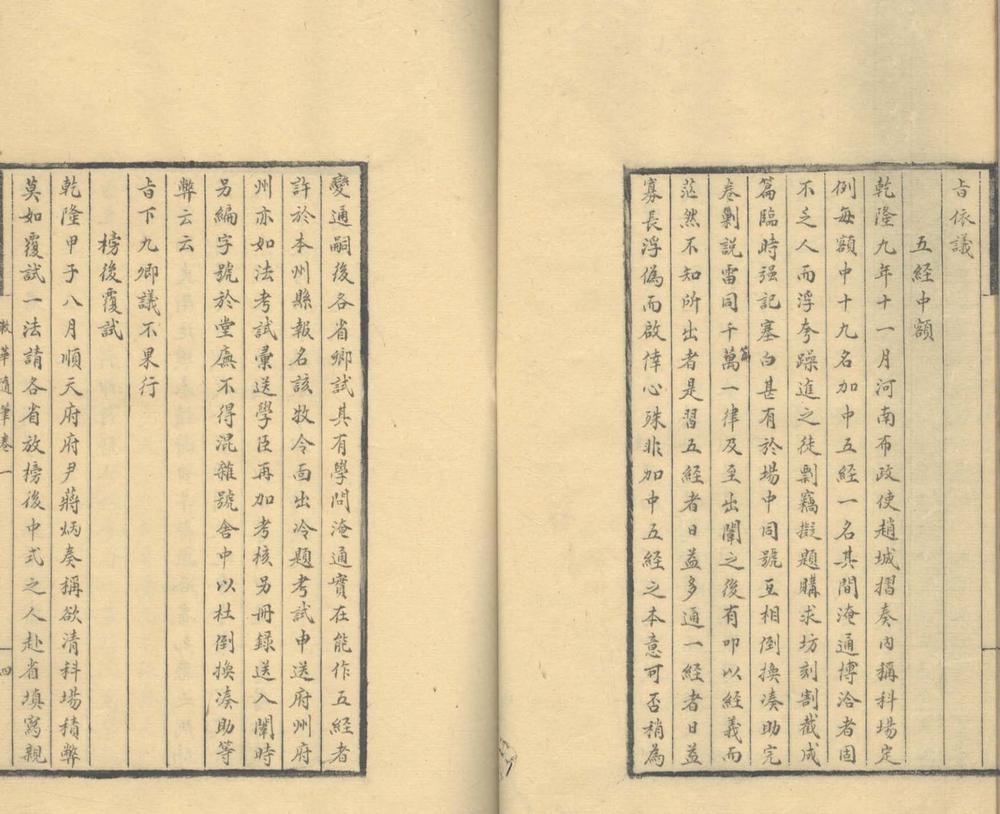 旨依議
五經中額
乾隆九年十一月河南布政使趙城摺奏内稱科場定
例每額中十九名加中五經一名其間淹通博洽者固
不乏人而浮夸躁進之徒剽竊擬題購求坊刻割截成
篇臨時强記塞白甚有於場中同號互相倒換凑助完
卷剿説雷同千萬一律及至出闈之後有叩以經義而
茫然不知所出者是習五經者日益多通一經者日益
寡長浮僞而啟倖心殊非加中五經之本意可否稍為
變通嗣後各省鄉試其有學問淹通實在能作五經者
許於本州縣報名該牧令面出冷題考試申送府州府
州亦如法考試彙送學臣再加考核另册録送入闈時
另編字號於堂廡不得混雜號舍中以杜倒換凑助等
弊云云
旨下九卿議不果行
榜後覆試
乾隆甲子八月順天府府尹蔣炳奏稱欲清科場積弊
莫如覆試一法請各省放榜後中式之人赴省填寫親
隨筆卷一
四